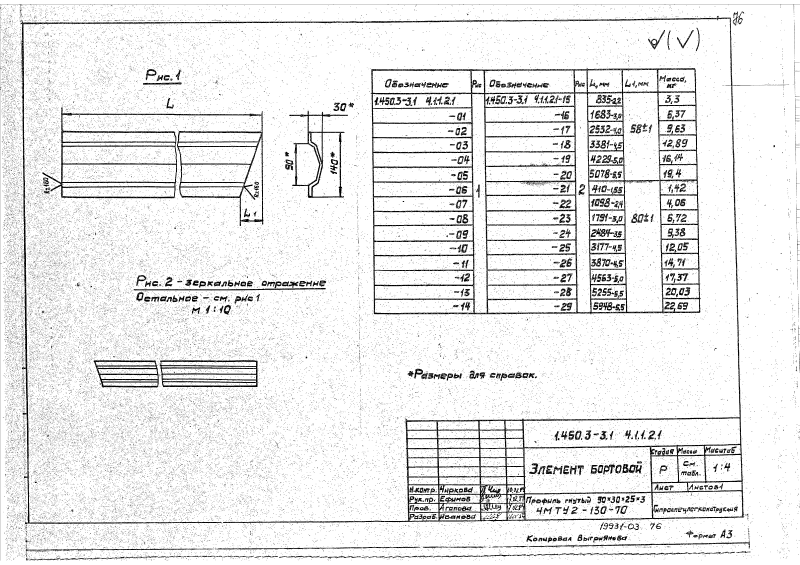 76
Рис.1
L
30*
90*
140*
L1
Рис. 2 - зеркальное отражение
Остальное - см. рис 1
М 1:10
Обозначение Рис Обозначение Рис L, мм L1, мм Масса, кг
1.450.3-3.1 4.1.1.2.1 1 1.450.3-3.1 4.1.1.2.1-15 2 835-2,2 58±1 3,3
-01 -16 1683-3,0 6,37
-02 -17 2532-4,0 9,63
-03 -18 3381-4,5 12,89
-04 -19 4229-5,0 16,14
-05 -20 5078-5,5 19,4
-06 -21 410-1,55 80±1 1,42
-07 -22 1098-2,4 4,06
-08 -23 1791-3,0 6,72
-09 -24 2484-3,5 9,38
-10 -25 3177-4,5 12,05
-11 -26 3870-4,5 14,71
-12 -27 4563-5,0 17,37
-13 -28 5255-5,5 20,03
-14 -29 5948-5,5 22,69
*Размеры для справок.
1.450.3-3.1 4.1.1.2.1
Элемент бортовой
Стадия Масса Масштаб
Р См. табл. 1:4
Лист Листов 1
Н.контр. Чиркова
Рук.пр. Ефимов
Пров. Агапова
Разраб. Иванова
Профиль гнутый 90×30×25×3
ЧМТУ 2-130-70
Гипроспецлегконструкция
19931-03 76
Копировал Выгрианова
Формат А3